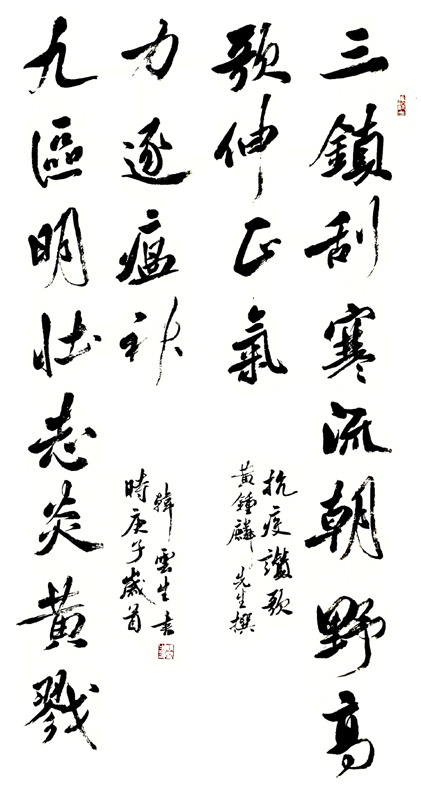 三鎮刮寒流朝野高
歌伸正氣
抗疫讚歌
黃鍾麟先生撰
九區明壯志炎黃戮
力逐瘟神
時庚子歲首
韓雲生書